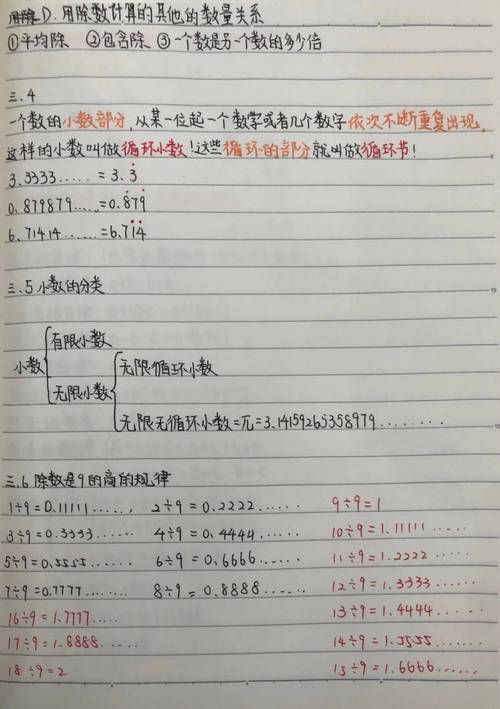 D.用除数计算的其他的数量关系
①平均除 ②包含除 ③一个数是另一个数的多少倍
三.4
一个数的小数部分,从某一位起一个数字或者几个数字依次不断重复出现,
这样的小数叫做循环小数!这些循环的部分就叫做循环节!
3.3333..... = 3.3̇
0.879879.....=0.8̇79̇
6.71414......=6.71̇4̇
三.5小数的分类
小数
有限小数
无限小数
无限循环小数
无限无循环小数=π=3.14159265358979........
三.6除数是9的商的规律
1÷9=0.11111...... 2÷9=0.2222...... 9÷9=1
3÷9=0.3333...... 4÷9=0.4444...... 10÷9=1.11111.....
5÷9=0.5555...... 6÷9=0.6666...... 11÷9=1.2222.....
7÷9=0.7777...... 8÷9=0.8888...... 12÷9=1.3333.....
16÷9=1.7777..... 13÷9=1.4444.....
17÷9=1.8888..... 14÷9=1.5555.....
18÷9=2 15÷9=1.6666......